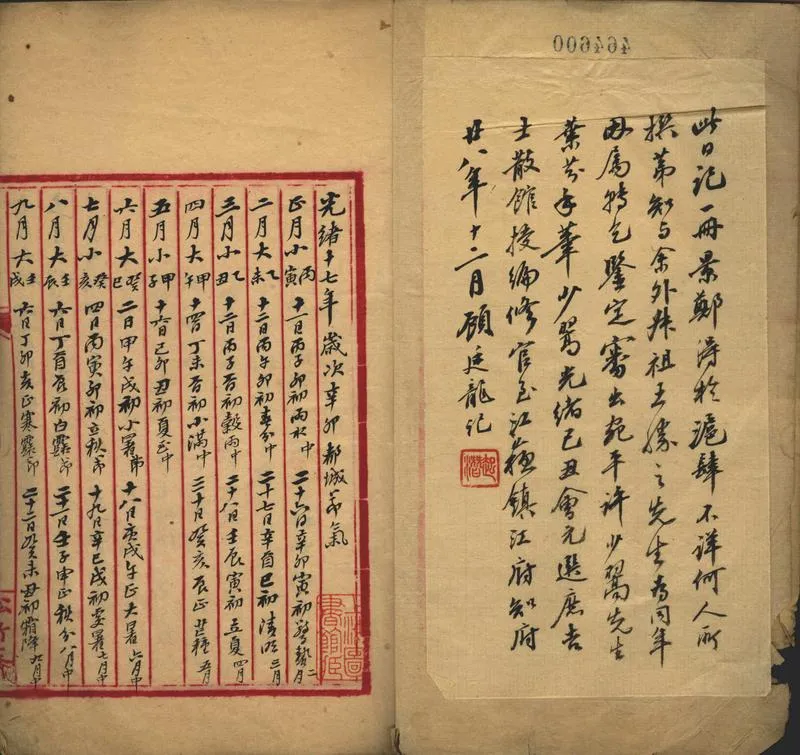 此日記一冊景鄭得於滬肆不詳何人所
撰第知与余外叔祖王勝之先生為同年
因屬轉乞鑒定審出宛平許少鶚先生
葉芬手筆少鶚光緒己丑會元選庶吉
士散館授編修官至江蘇鎮江府知府
廿八年十二月顧廷龍記
起潛
光緒十七年歲次辛卯都城節氣
正月小丙寅 十一日丙子卯初雨水中 二十六日辛卯寅初驚蟄二月
二月大乙未 十二日丙午卯初春分中 二十七日辛酉巳初清明三月
三月小乙丑 十二日丙子酉初穀雨中 二十八日壬辰寅初立夏四月
四月大甲午 十四日丁未酉初小滿中 三十日癸亥辰正芒種五月
五月小甲子 十六日己卯丑初夏至中
六月大癸巳 二日甲午戌初小暑節 十八日庚戌午正大暑六月中
七月小癸亥 四日丙寅卯初立秋節 十九日辛巳戌初處暑七月中
八月大壬辰 六日丁酉辰初白露節 二十一日壬子申正秋分八月中
九月大壬戌 六日丁卯亥正寒露節 二十二日癸未丑初霜降九月中